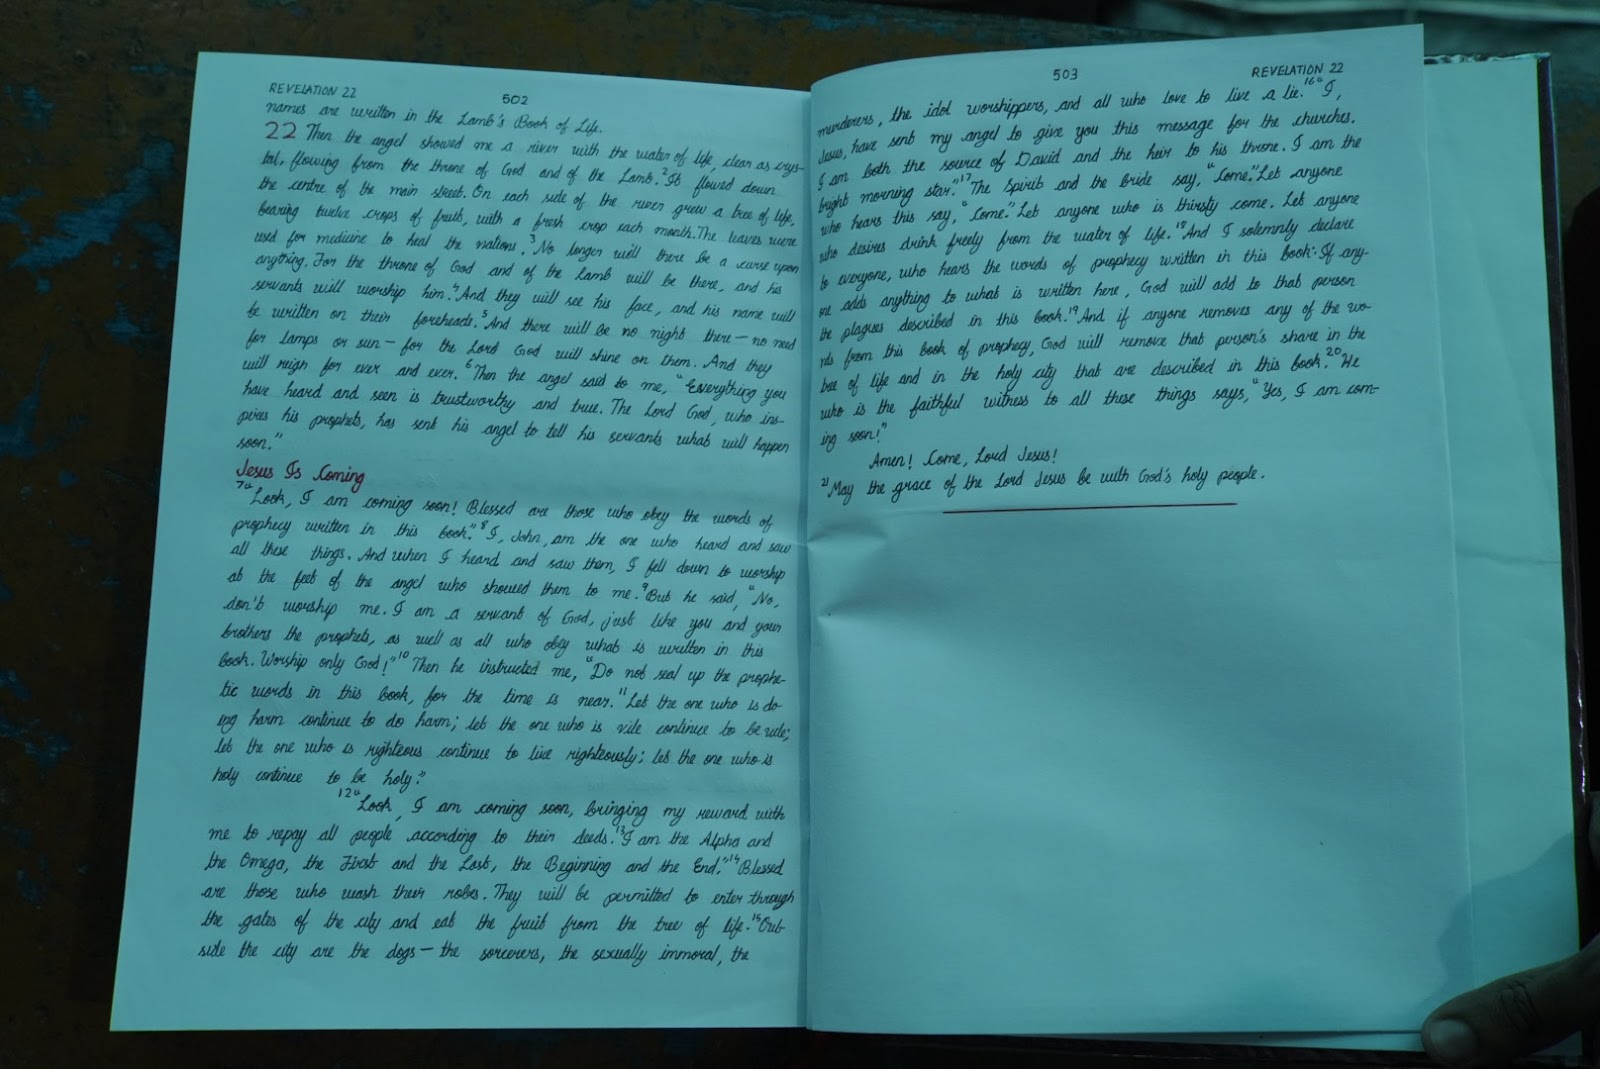 REVELATION 22
502
names are written in the Lamb's Book of Life.
22 Then the angel showed me a river with the water of life, clear as crys-
tal, flowing from the throne of God and of the Lamb. 2 It flowed down
the centre of the main street. On each side of the river grew a tree of life,
bearing twelve crops of fruit, with a fresh crop each month. The leaves were
used for medicine to heal the nations. 3 No longer will there be a curse upon
anything. For the throne of God and of the Lamb will be there, and his
servants will worship him. 4 And they will see his face, and his name will
be written on their foreheads. 5 And there will be no night there — no need
for lamps or sun — for the Lord God will shine on them. And they
will reign for ever and ever. 6 Then the angel said to me, "Everything you
have heard and seen is trustworthy and true. The Lord God, who ins-
pires his prophets, has sent his angel to tell his servants what will happen
soon."
Jesus Is Coming
7 "Look, I am coming soon! Blessed are those who obey the words of
prophecy written in this book." 8 I, John, am the one who heard and saw
all these things. And when I heard and saw them, I fell down to worship
at the feet of the angel who showed them to me. 9 But he said, "No,
don't worship me. I am a servant of God, just like you and your
brothers the prophets, as well as all who obey what is written in this
book. Worship only God!" 10 Then he instructed me, "Do not seal up the prophe-
tic words in this book, for the time is near. 11 Let the one who is do-
ing harm continue to do harm; let the one who is vile continue to be vile;
let the one who is righteous continue to live righteously; let the one who is
holy continue to be holy."
12 "Look, I am coming soon, bringing my reward with
me to repay all people according to their deeds. 13 I am the Alpha and
the Omega, the First and the Last, the Beginning and the End." 14 Blessed
are those who wash their robes. They will be permitted to enter through
the gates of the city and eat the fruit from the tree of life. 15 Out-
side the city are the dogs — the sorcerers, the sexually immoral, the
503
REVELATION 22
murderers, the idol worshippers, and all who love to live a lie. 16 "I,
Jesus, have sent my angel to give you this message for the churches.
I am both the source of David and the heir to his throne. I am the
bright morning star." 17 The Spirit and the bride say, "Come." Let anyone
who hears this say, "Come." Let anyone who is thirsty come. Let anyone
who desires drink freely from the water of life. 18 And I solemnly declare
to everyone, who hears the words of prophecy written in this book: If any-
one adds anything to what is written here, God will add to that person
the plagues described in this book. 19 And if anyone removes any of the wo-
rds from this book of prophecy, God will remove that person's share in the
tree of life and in the holy city that are described in this book. 20 He
who is the faithful witness to all these things says, "Yes, I am com-
ing soon!"
Amen! Come, Lord Jesus!
21 May the grace of the Lord Jesus be with God's holy people.